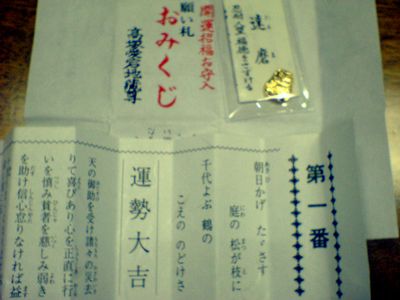 開運招福お守入
願い札
おみくじ
高塚愛宕地蔵尊
達磨
だるま
第一番
朝日かげ たゞさす
あさひ
庭の 松が枝に
にわ まつ え
千代よぶ 鶴の
ちよ つる
こえの のどけさ
運勢大吉
天の御助を受け諸々の災去
りて喜びあり心を正直に行
いを慎み貧者を慈しみ弱き
を助け信心怠りなければ益